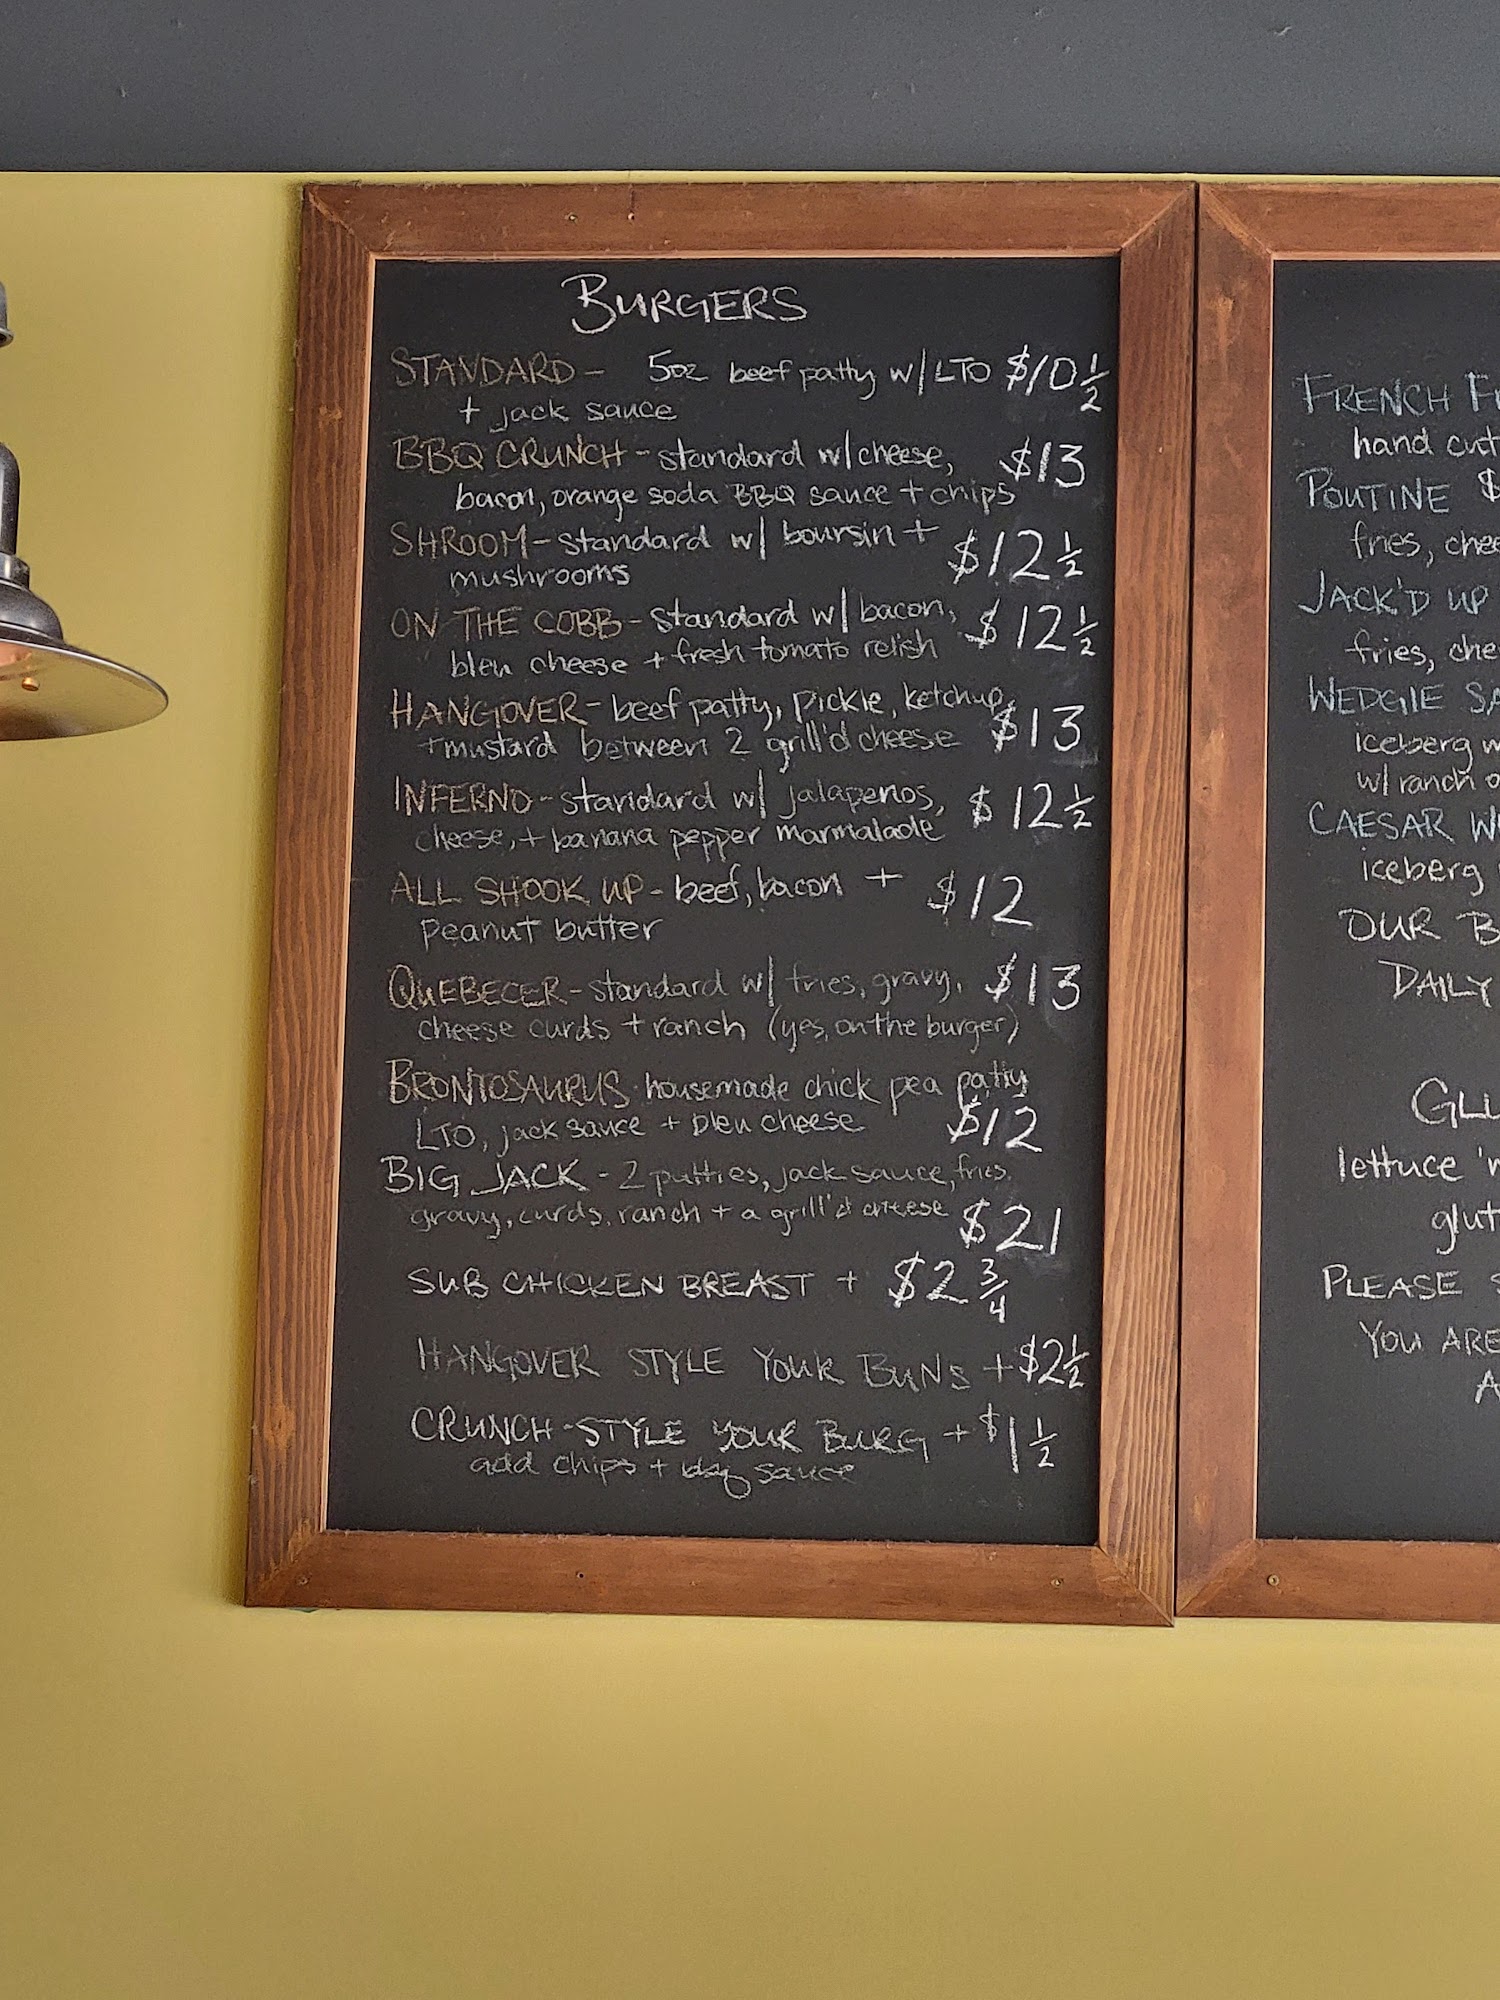 BURGERS
STANDARD - 5oz beef patty w/ LTO $10 1/2
+ jack sauce
BBQ CRUNCH - standard w/ cheese, $13
bacon, orange soda BBQ sauce + chips
SHROOM - standard w/ boursin +
mushrooms $12 1/2
ON THE COBB - standard w/ bacon, $12 1/2
bleu cheese + fresh tomato relish
HANGOVER - beef patty, pickle, ketchup,
+ mustard between 2 grill'd cheese $13
INFERNO - standard w/ jalapenos, $12 1/2
cheese, + banana pepper marmalade
ALL SHOOK UP - beef, bacon + $12
peanut butter
QUEBECER - standard w/ fries, gravy, $13
cheese curds + ranch (yes, on the burger)
BRONTOSAURUS - housemade chick pea patty
LTO, jack sauce + bleu cheese $12
BIG JACK - 2 patties, jack sauce, fries,
gravy, curds, ranch + a grill'd cheese $21
SUB CHICKEN BREAST + $2 3/4
HANGOVER STYLE YOUR BUNS + $2 1/2
CRUNCH-STYLE YOUR BURG + $1 1/2
add chips + bbq sauce
FRENCH
hand cut
POUTINE $
fries,
JACK'D UP
fries,
WEDGIE
iceberg
w/ ranch
CAESAR
iceberg
OUR
DAILY
lettuce
PLEASE
YOU ARE